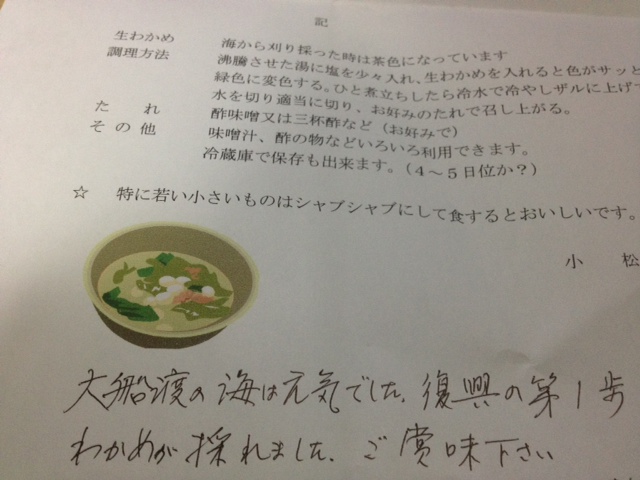 記
生わかめ 海から刈り採った時は茶色になっています
調理方法 沸騰させた湯に塩を少々入れ、生わかめを入れると色がサッと
緑色に変色する。ひと煮立ちしたら冷水で冷やしザルに上げて
水を切り適当に切り、お好みのたれで召し上がる。
たれ 酢味噌又は三杯酢など（お好みで）
その他 味噌汁、酢の物などいろいろ利用できます。
冷蔵庫で保存も出来ます。（４～５日位か？）
☆ 特に若い小さいものはシャブシャブにして食するとおいしいです。
小 松
大船渡の海は元気でした、復興の第1歩
わかめが採れました、ご賞味下さい